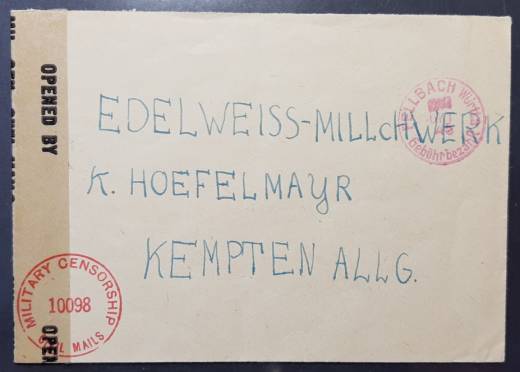 OPENED BY
FELLBACH Württ
Gebühr bezahlt
EDELWEISS-MILLCHWERK
K. HOEFELMAYR
KEMPTEN ALLG.
MILITARY CENSORSHIP
10098
CIVIL MAILS
OPEN